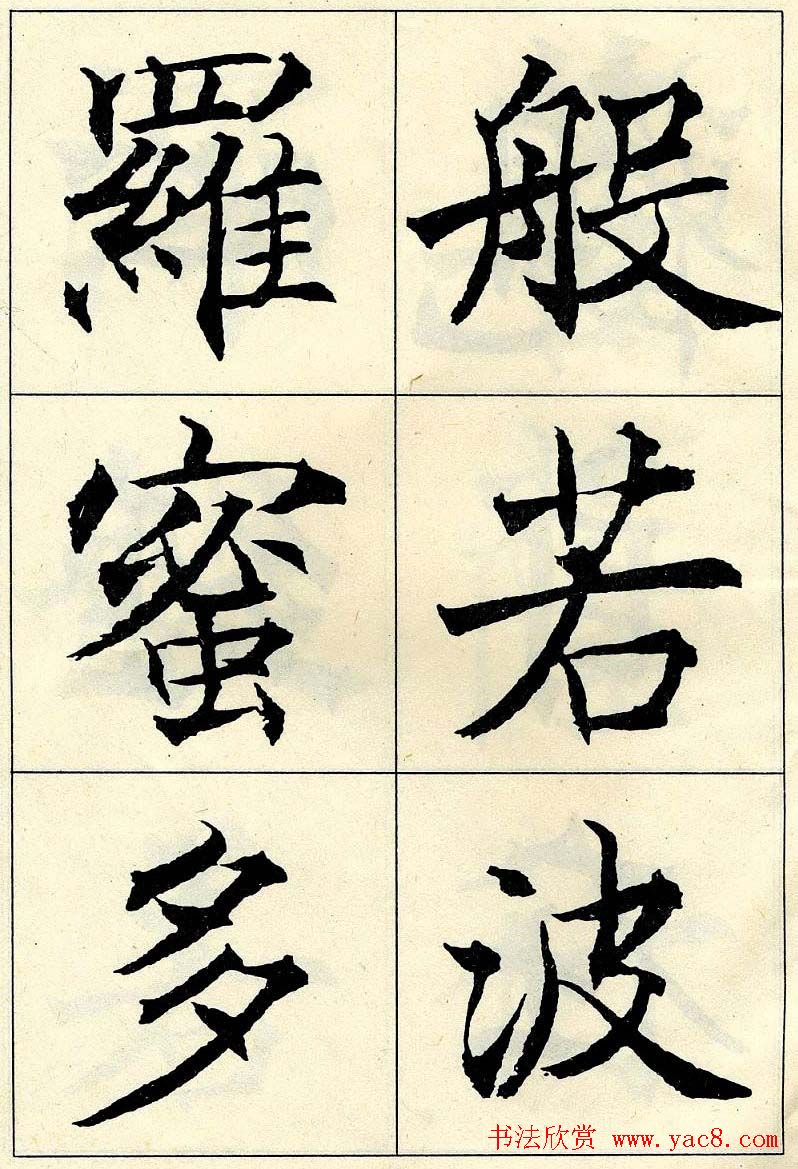 般若波
羅蜜多
书法欣赏 www.yac8.com